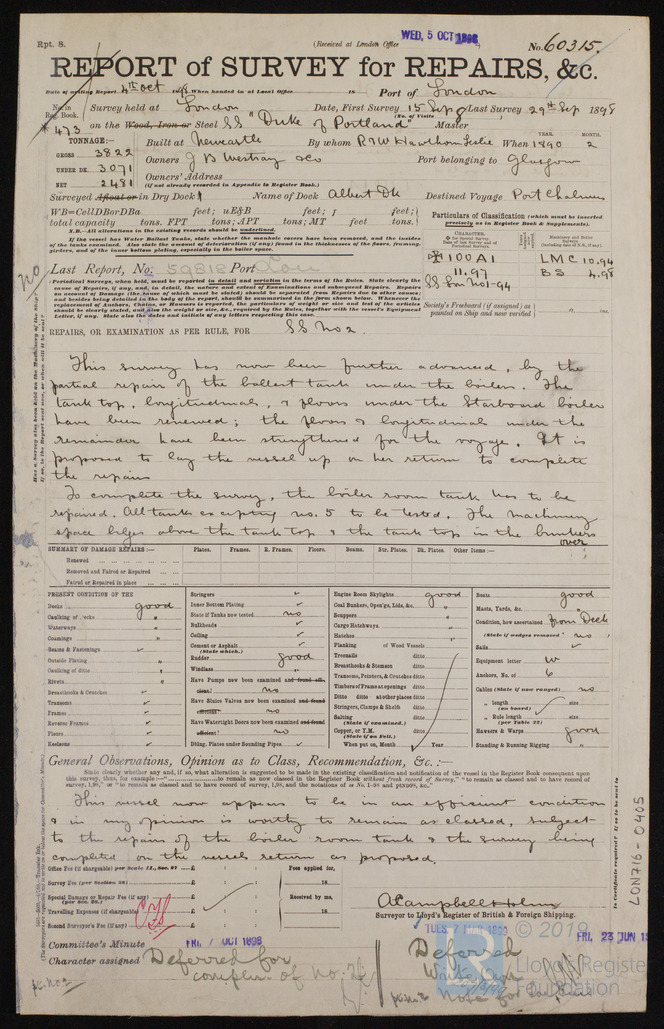 Rpt. 8.
(Received at London Office WED, 5 OCT 1898
No. 60315.
REPORT of SURVEY for REPAIRS, &c.
Date of writing Report 4th Oct 1898 When handed in at Local Office 18 Port of London
No. in Reg. Book. Survey held at London Date, First Survey 15 Sep 98 Last Survey 29th Sep 1898
(No. of Visits
* 473 on the Wood, Iron or Steel SS "Duke of Portland" Master
TONNAGE:—
GROSS 3822
UNDER DK. 3071
NET 2481
Built at Newcastle By whom R & W Hawthorn Leslie When 1890 2
YEAR. MONTH.
Owners J B Westray & Co Port belonging to Glasgow
Owners' Address
(if not already recorded in Appendix to Register Book.)
Surveyed Afloat or in Dry Dock Name of Dock Albert Dk Destined Voyage Port Chalmers
WB=CellDBorDBa feet; uE&B feet; f feet;
total capacity tons. FPT tons; APT tons; MT feet tons.
N.B.—All alterations in the existing records should be underlined.
If the vessel has Water Ballast Tanks, state whether the manhole covers have been removed, and the insides
of the tanks examined. Also state the amount of deterioration (if any) found in the thicknesses of the floors, framing,
girders, and of the inner bottom plating, especially in the boiler space.
Particulars of Classification (which must be inserted
precisely as in Register Book & Supplements).
100A1
11.97
SS Lon No1-94
LMC 10.94
BS 4.98
Society's Freeboard (if assigned) as
painted on Ship and now verified
Last Report, No. 59818 Port Lon
(Periodical Surveys, when held, must be reported in detail and seriatim in the terms of the Rules. State clearly the
cause of Repairs, if any, and, in detail, the nature and extent of Examinations and subsequent Repairs. Repairs
on account of Damage (the cause of which must be stated) should be separated from Repairs due to other causes;
and besides being detailed in the body of the report, should be summarised in the form shown below. Whenever the
replacement of Anchors, Chains, or Hawsers is reported, the particulars of weight or size and test of the articles
should be clearly stated, and also the weight or size, &c., required by the Rules, together with the vessel's Equipment
Letter, if any. State also the dates and initials of any letters respecting this case.
REPAIRS, OR EXAMINATION AS PER RULE, FOR SS No 2
This survey has now been further advanced, by the
partial repair of the ballast tank under the boilers. The
tank top, longitudinals, & floors under the Starboard boiler
have been renewed; the floors & longitudinals under the
remainder have been strengthened for the voyage. It is
proposed to lay the vessel up on her return to complete
the repairs
To complete the survey, the boiler room tank has to be
repaired. All tanks excepting no. 5 to be tested. The machinery
space bilges above the tank top & the tank top in the bunkers
over
SUMMARY OF DAMAGE REPAIRS:— Plates. Frames. R. Frames. Floors. Beams. Str. Plates. Dk. Plates. Other Items:—
Renewed
Removed and Faired or Repaired
Faired or Repaired in place
PRESENT CONDITION OF THE
Decks good
Caulking of Decks "
Waterways "
Coamings "
Beams & Fastenings
Outside Plating
Caulking of ditto
Rivets
Breasthooks & Crutches
Transoms
Frames
Reverse Frames
Floors
Keelsons
Stringers
Inner Bottom Plating
State if Tanks now tested no
Bulkheads
Ceiling
Cement or Asphalt
(State which.)
Rudder good
Windlass
Have Pumps now been examined and found efficient? no
Have Sluice Valves now been examined and found efficient? no
Have Watertight Doors now been examined and found efficient? no
Dbling. Plates under Sounding Pipes
Engine Room Skylights good
Coal Bunkers, Open'gs, Lids, &c. "
Scuppers "
Cargo Hatchways "
Hatches "
Planking of Wood Vessels
Treenails ditto
Breasthooks & Stemson ditto
Transoms, Pointers, & Crutches ditto
Timbers of Frame at openings ditto
Ditto ditto at other places ditto
Stringers, Clamps & Shelfs ditto
Salting ditto
(State if examined.)
Copper, or Y.M. ditto
(State if on Felt.)
When put on, Month Year
Boats good
Masts, Yards, &c. "
Condition, how ascertained from Deck
(State if wedges removed no
Sails
Equipment letter W
Anchors, No. of 6
Cables (State if now ranged) no
" length size
(on board)
" Rule length size
(per Table 22)
Hawsers & Warps good
Standing & Running Rigging "
General Observations, Opinion as to Class, Recommendation, &c.:—
State clearly whether any, and if so, what alteration is suggested to be made in the existing classification and notification of the vessel in the Register Book consequent upon
This vessel now appears to be in an efficient condition
& in my opinion is worthy to remain as classed, subject
to the repairs of the boiler room tank & the survey being
completed on the vessels return as proposed.
Office Fee (if chargeable) per Scale II., Sec. 27 £ : :
Survey Fee (per Section 28) £ : :
Special Damage or Repair Fee (if any) £ : :
(per Sec. 28.)
Travelling Expenses (if chargeable) £ : :
Second Surveyor's Fee (if any) £ : :
Fees applied for,
18
Received by me,
18
A Campbell Holms
Surveyor to Lloyd's Register of British & Foreign Shipping.
Committee's Minute FRI, 7 OCT 1898
TUES, 7 MAR 1899
FRI, 23 JUN 18
Character assigned Deferred for
complen. of No. 2
Deferred
LON716-0405
© 2019
Lloyd's Register
Foundation